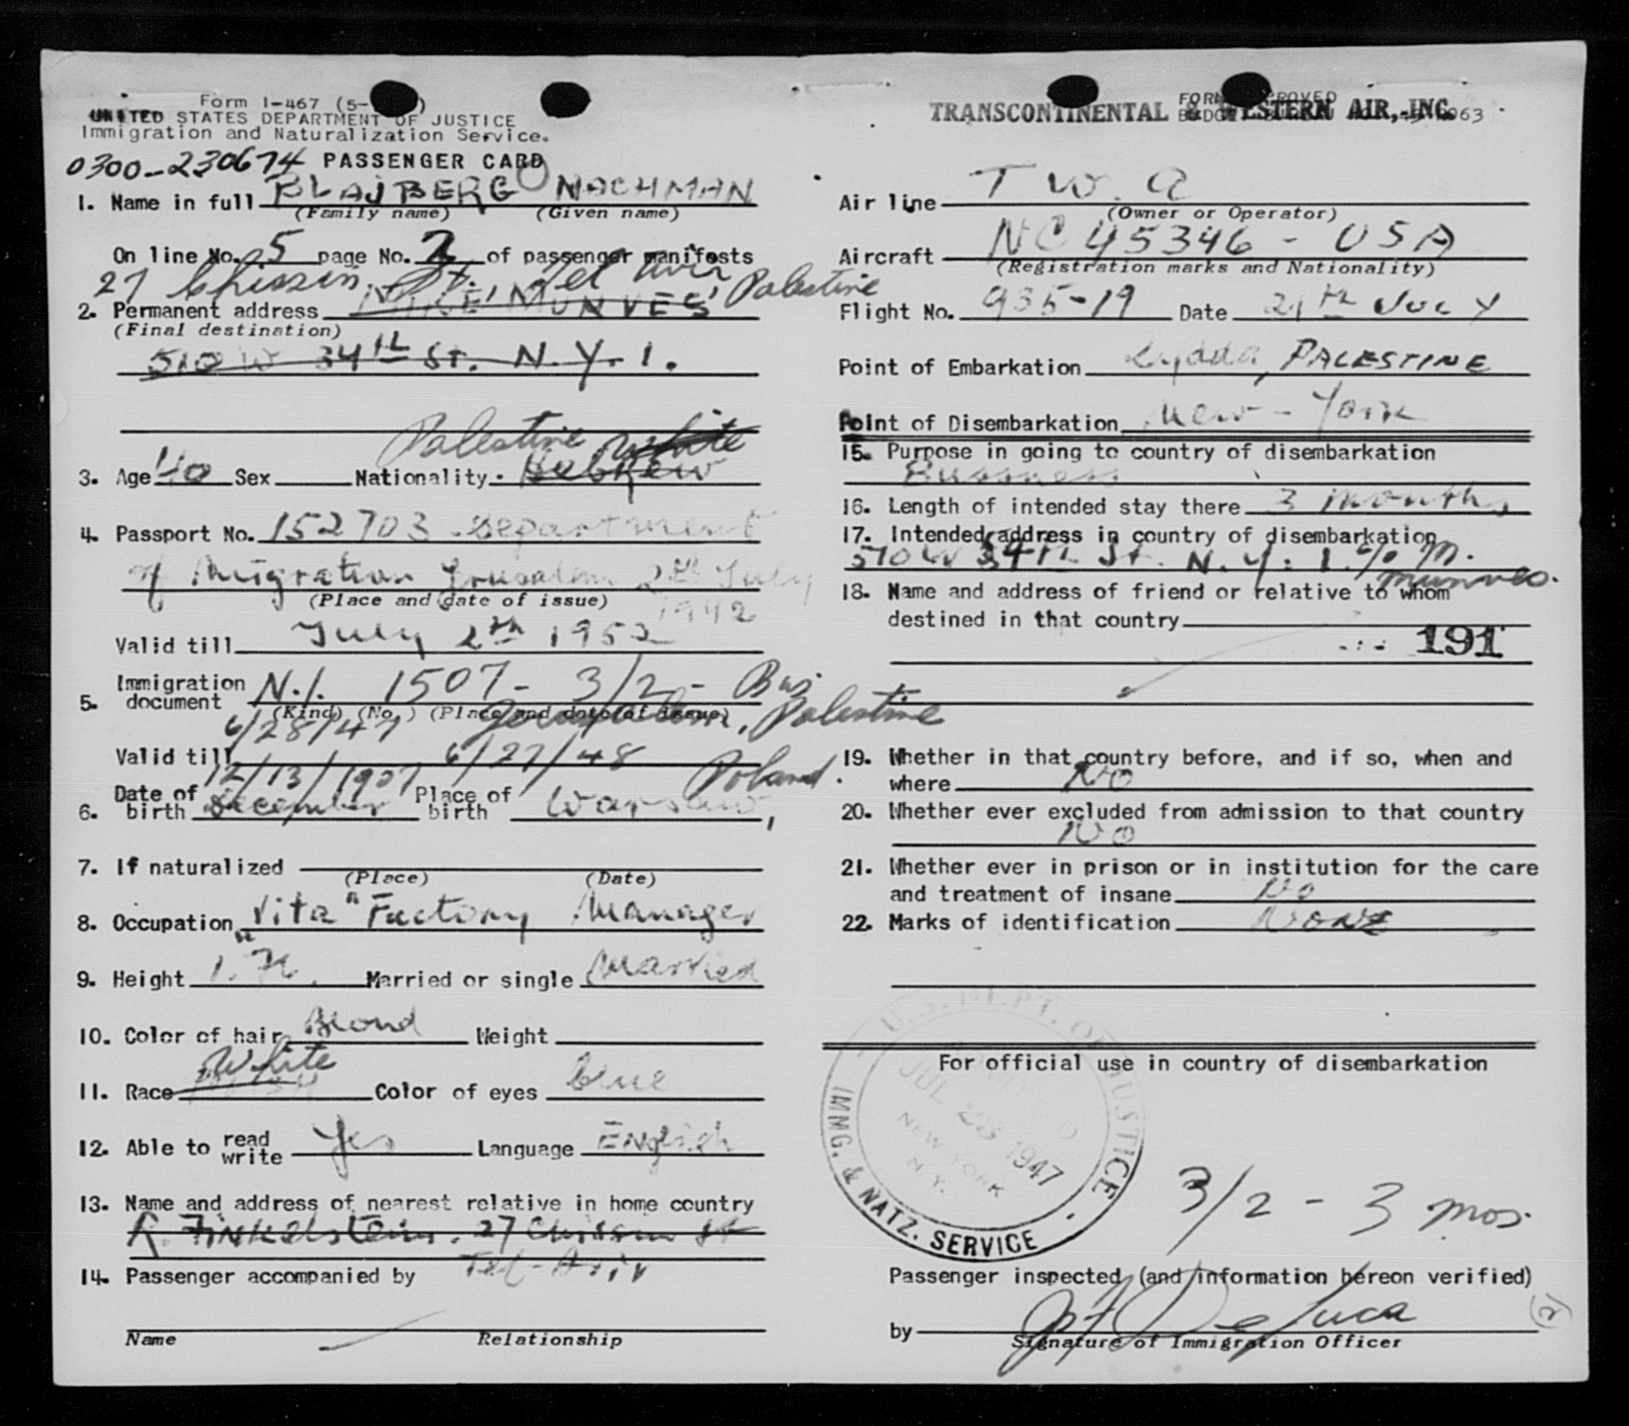 Form I-467 (5-
UNITED STATES DEPARTMENT OF JUSTICE
Immigration and Naturalization Service.
0300-230674 PASSENGER CARD
1. Name in full BLAJBERG NACHMAN
(Family name) (Given name)
On line No. 5 page No. 2 of passenger manifests
27 Chissin St. Tel Aviv, Palestine
2. Permanent address MIKE MUNVES
(Final destination)
510 W 34th St. N.Y. 1.
Palestine white
3. Age 40 Sex Nationality Hebrew
4. Passport No. 152703 Department
of Migration Jerusalem 2th July
(Place and date of issue) 1942
Valid till July 2th 1952
5. Immigration document N.I. 1507- 3/2- Bus.
(Kind) (No.) (Place and date of issue)
6/28/47 Jerusalem, Palestine
Valid till 6/27/48
12/13/1907 Poland.
6. Date of birth December Place of birth Warsaw,
7. If naturalized
(Place) (Date)
8. Occupation "Vita" Factory Manager
9. Height 1.71. Married or single Married
10. Color of hair Blond Weight
White
11. Race Color of eyes blue
12. Able to read write Yes Language English
13. Name and address of nearest relative in home country
R. Finkelstein. 27 Chissin St
Tel-Aviv
14. Passenger accompanied by
Name Relationship
FORM APPROVED
TRANSCONTINENTAL & WESTERN AIR, INC.
Air line T W. A
(Owner or Operator)
Aircraft NC 45346 - USA
(Registration marks and Nationality)
Flight No. 935-19 Date 27th July
Point of Embarkation Lydda, PALESTINE
Point of Disembarkation New-York
15. Purpose in going to country of disembarkation
Bussness
16. Length of intended stay there 3 months
17. Intended address in country of disembarkation
510 W 34th St. N.Y. 1. c/o M. Munves.
18. Name and address of friend or relative to whom
destined in that country
191
19. Whether in that country before, and if so, when and
where No
20. Whether ever excluded from admission to that country
No
21. Whether ever in prison or in institution for the care
and treatment of insane No
22. Marks of identification None
For official use in country of disembarkation
U.S. DEPT. OF JUSTICE
JUL 28 1947
NEW YORK
N.Y.
IMMG. & NATZ. SERVICE
3/2 - 3 mos.
Passenger inspected (and information hereon verified)
by DeLuca
Signature of Immigration Officer
(2)